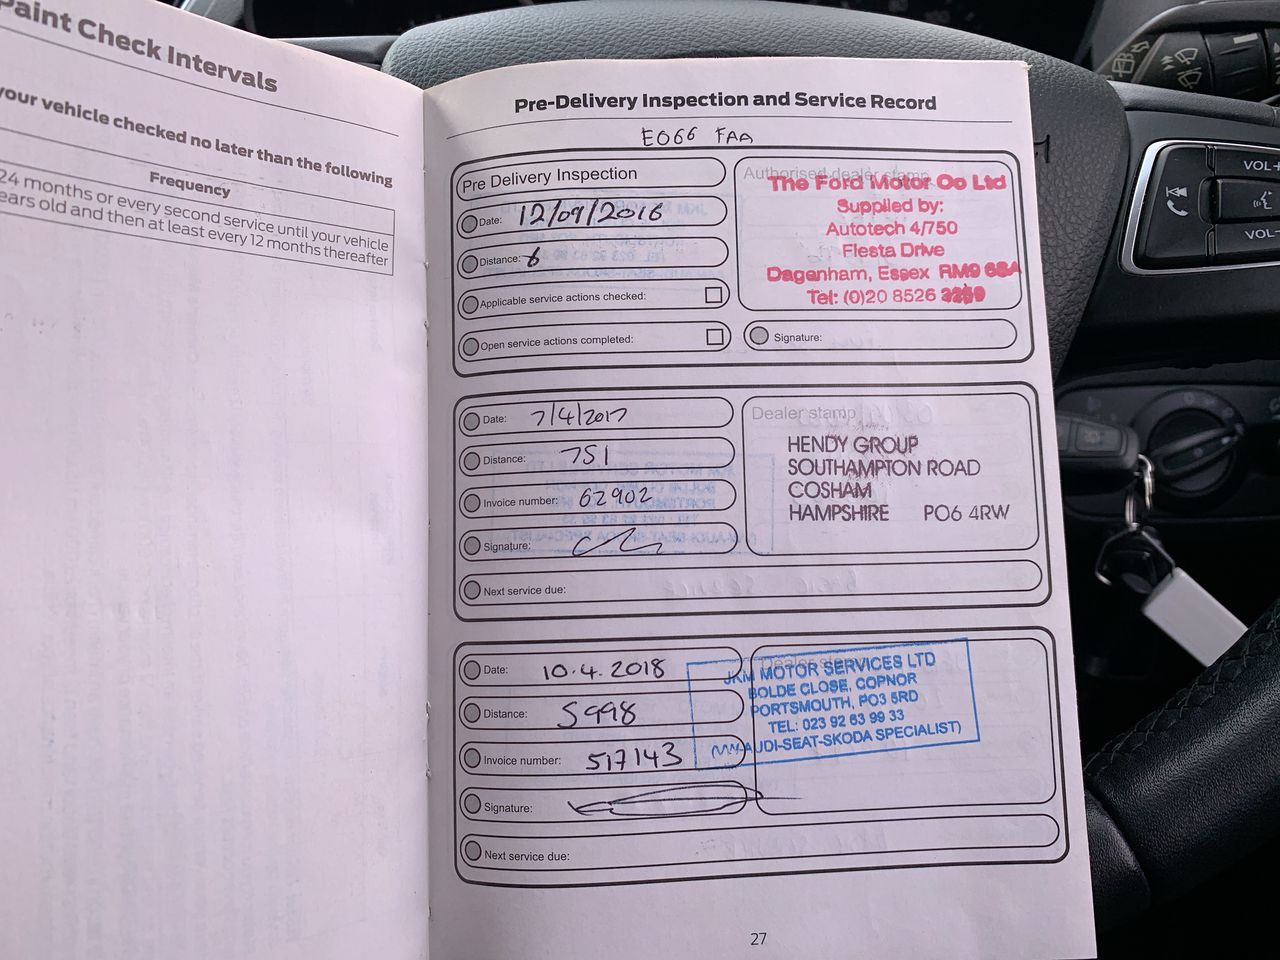 Paint Check Intervals
your vehicle checked no later than the following
Frequency
24 months or every second service until your vehicle
ears old and then at least every 12 months thereafter
Pre-Delivery Inspection and Service Record
EO66 FAA
Pre Delivery Inspection
Date: 12/09/2016
Distance: 6
Applicable service actions checked:
Open service actions completed:
Authorised dealer stamp
The Ford Motor Co Ltd
Supplied by:
Autotech 4/750
Fiesta Drive
Dagenham, Essex RM9 6SA
Tel: (0)20 8526
Signature:
Date: 7/4/2017
Distance: 751
Invoice number: 62902
Signature:
Next service due:
Dealer stamp
HENDY GROUP
SOUTHAMPTON ROAD
COSHAM
HAMPSHIRE PO6 4RW
Date: 10.4.2018
Distance: 5998
Invoice number: 517143
Signature:
Next service due:
Dealer stamp
JKM MOTOR SERVICES LTD
BOLDE CLOSE, COPNOR
PORTSMOUTH, PO3 5RD
TEL: 023 92 63 99 33
(VW-AUDI-SEAT-SKODA SPECIALIST)
27
VOL+
VOL-